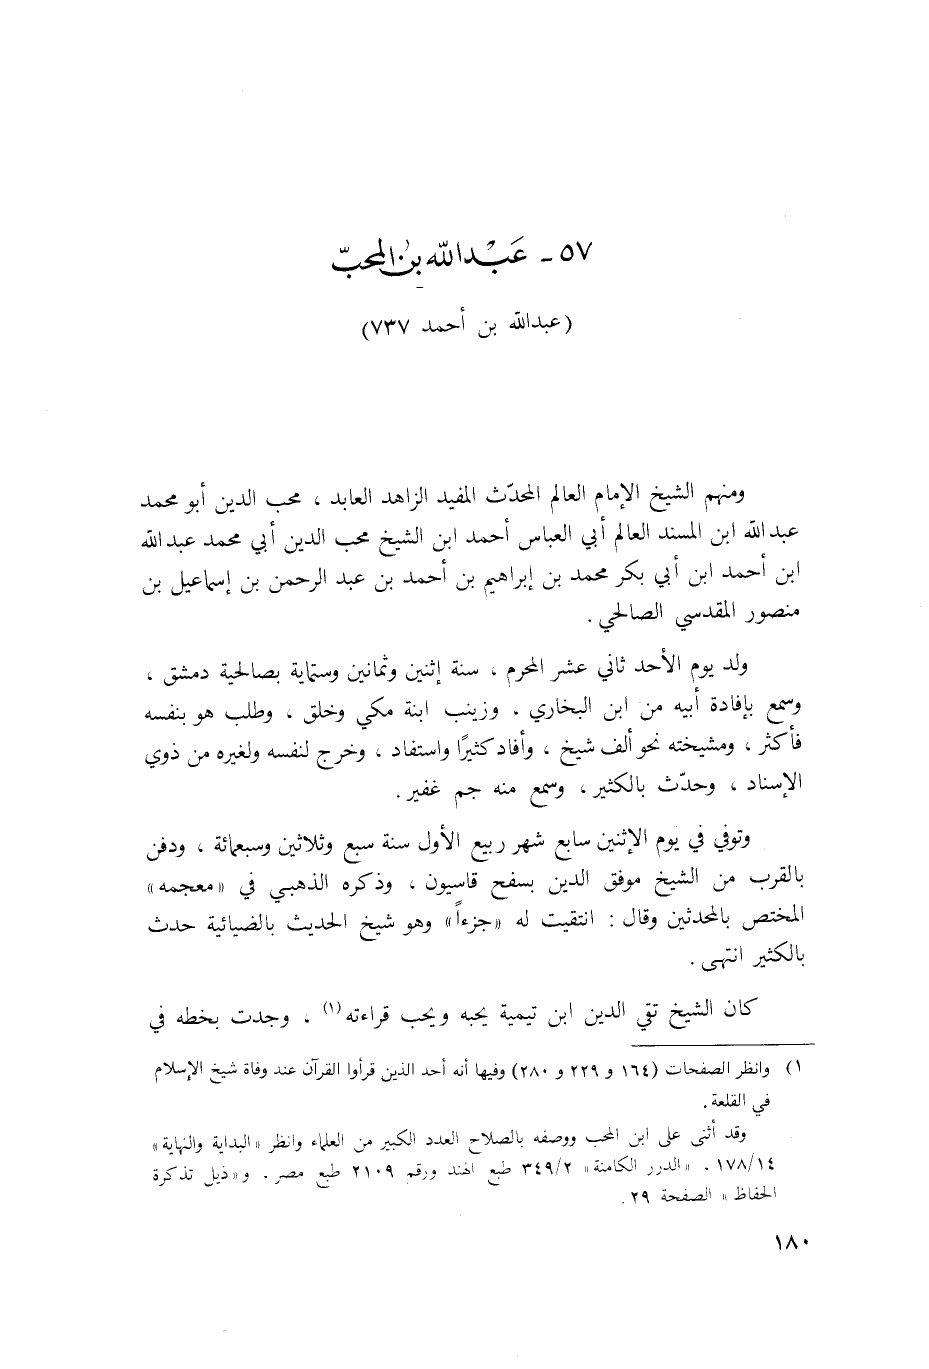 ٥٧ - عَبْدالله بنُ المحبّ
(عبدالله بن أحمد ٧٣٧)
ومنهم الشيخ الإمام العالم المحدّث المفيد الزاهد العابد ، محب الدين أبو محمد
عبدالله ابن المسند العالم أبي العباس أحمد ابن الشيخ محب الدين أبي محمد عبدالله
ابن أحمد ابن أبي بكر محمد بن إبراهيم بن أحمد بن عبد الرحمن بن إسماعيل بن
منصور المقدسي الصالحي .
ولد يوم الأحد ثاني عشر المحرم ، سنة إثنين وثمانين وستماية بصالحية دمشق ،
وسمع بإفادة أبيه من ابن البخاري . وزينب ابنة مكي وخلق ، وطلب هو بنفسه
فأكثر ، ومشيخته نحو ألف شيخ ، وأفاد كثيرًا واستفاد ، وخرج لنفسه ولغيره من ذوي
الإسناد ، وحدّث بالكثير ، وسمع منه جم غفير .
وتوفي في يوم الإثنين سابع شهر ربيع الأول سنة سبع وثلاثين وسبعمائة ، ودفن
بالقرب من الشيخ موفق الدين بسفح قاسيون ، وذكره الذهبي في «معجمه»
المختص بالمحدثين وقال : انتقيت له «جزءاً» وهو شيخ الحديث بالضيائية حدث
بالكثير انتهى .
كان الشيخ تقي الدين ابن تيمية يحبه ويحب قراءته(١) ، وجدت بخطه في
١) وانظر الصفحات (١٦٤ و ٢٢٩ و ٢٨٠) وفيها أنه أحد الذين قرأوا القرآن عند وفاة شيخ الإسلام
في القلعة .
وقد أثنى على ابن المحب ووصفه بالصلاح العدد الكبير من العلماء وانظر «البداية والنهاية»
١٧٨/١٤ . «الدرر الكامنة» ٣٤٩/٢ طبع الهند ورقم ٢١٠٩ طبع مصر . و«ذيل تذكرة
الحفاظ» الصفحة ٢٩ .
١٨٠